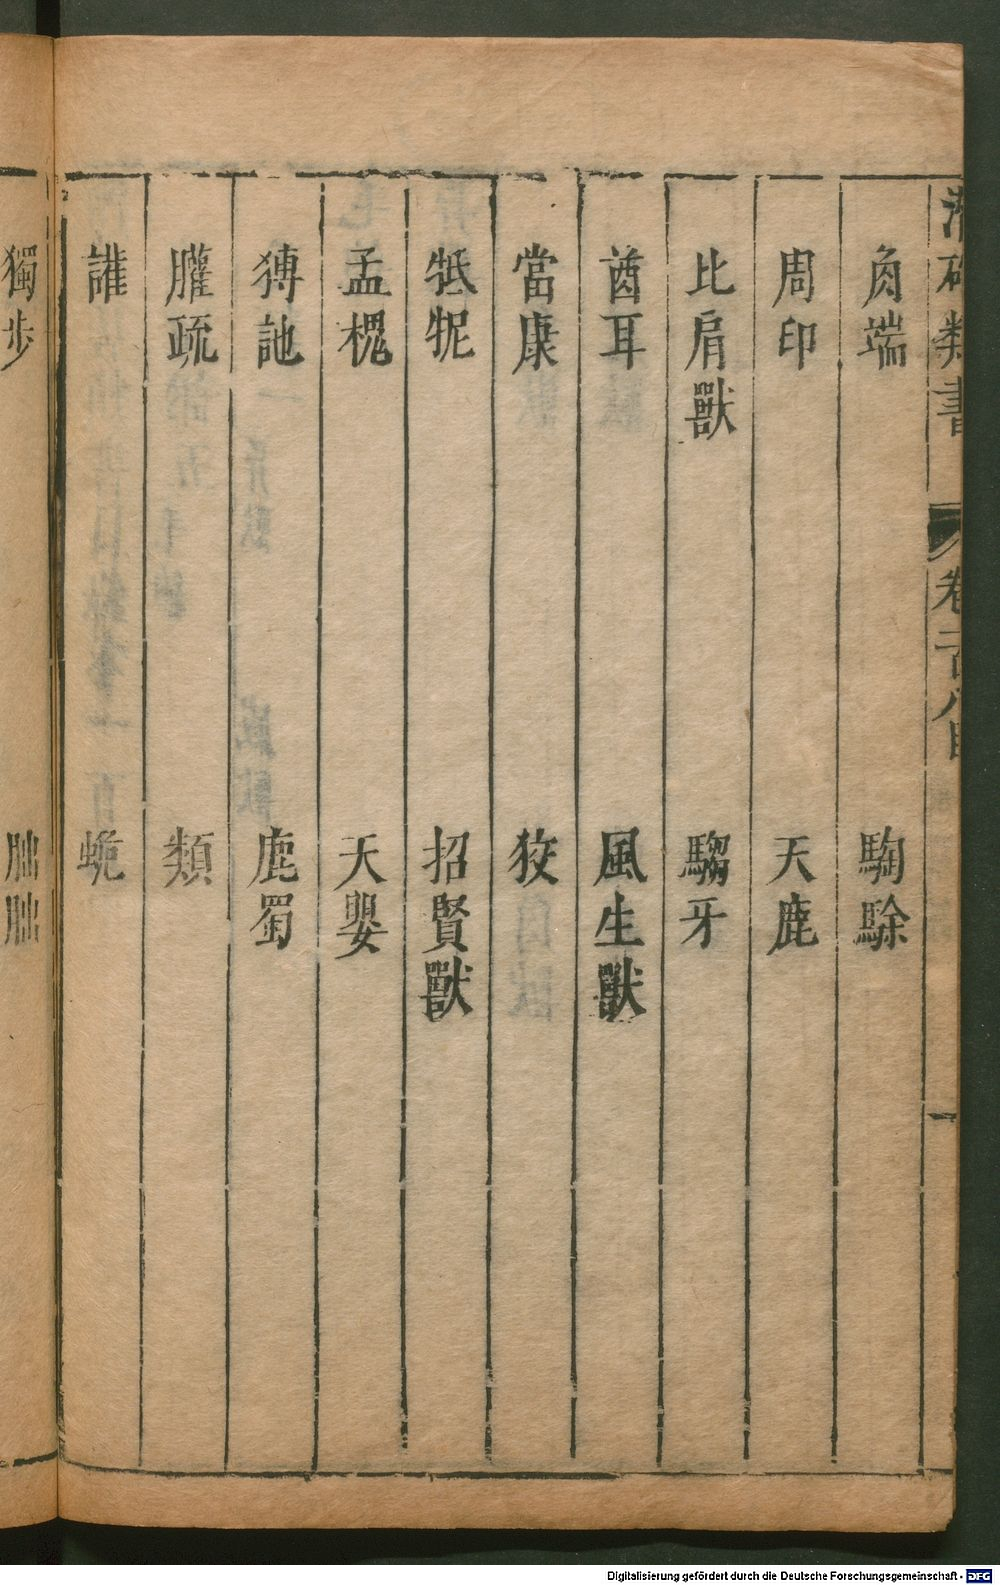 潛確類書 卷一百八目 一
角端 騊駼
周印 天鹿
比肩獸 騶牙
酋耳 風生獸
當康 狡
牴㹸 招賢獸
孟槐 天嬰
猼訑 鹿蜀
朧疏 類
讙 蛫
獨步 朏朏
Digitalisierung gefördert durch die Deutsche Forschungsgemeinschaft - DFG